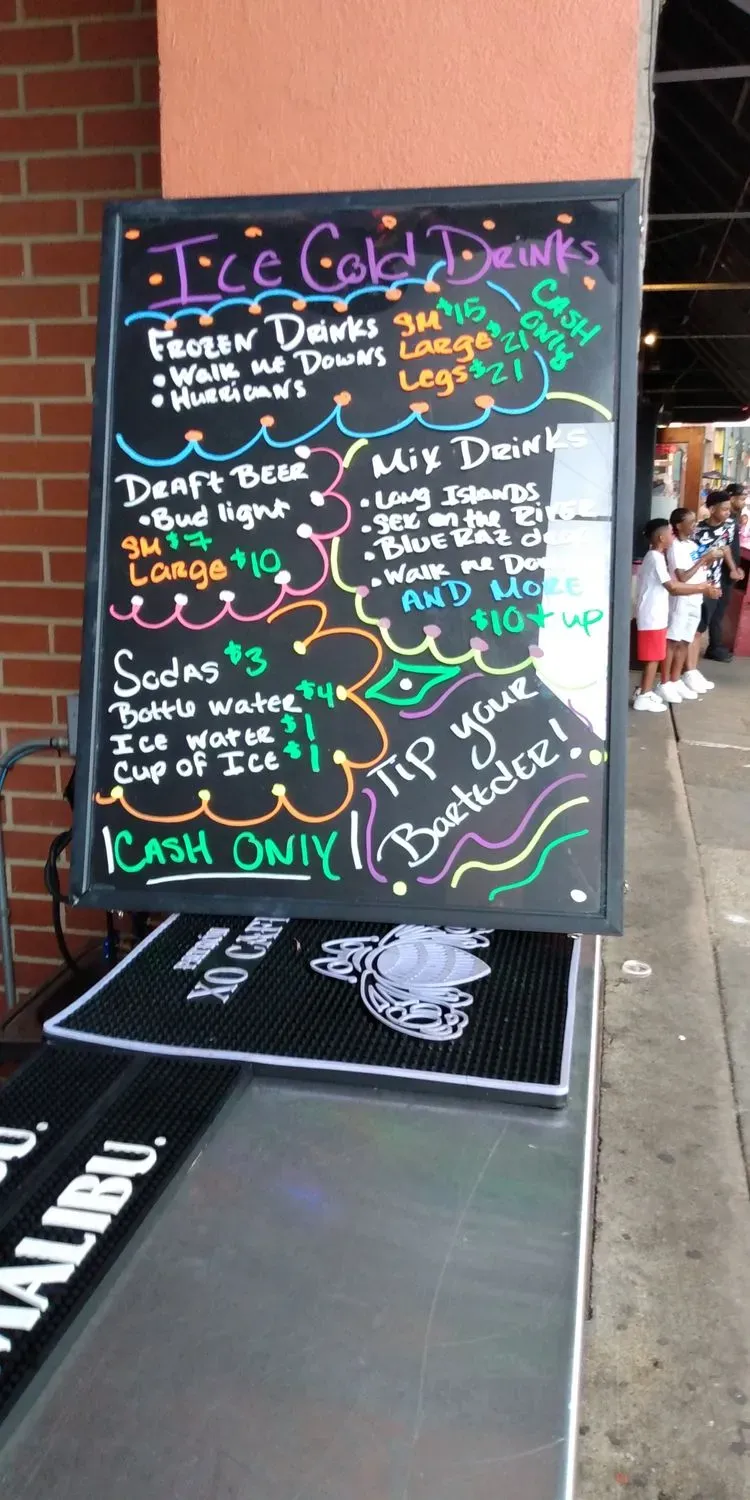 Ice Cold Drinks
Frozen Drinks
• Walk Me Downs
• Hurricans
SM $15
Large $21
Legs $21
CASH ONLY
Draft Beer
• Bud light
SM $7
Large $10
Mix Drinks
• Long Islands
• Sex on the River
• BLUE RAZ
• Walk me Do
AND MORE
$10 + up
Sodas $3
Bottle water $4
Ice water $1
Cup of Ice $1
CASH ONLY
Tip your
Barteder!
XO CAFE
MALIBU.